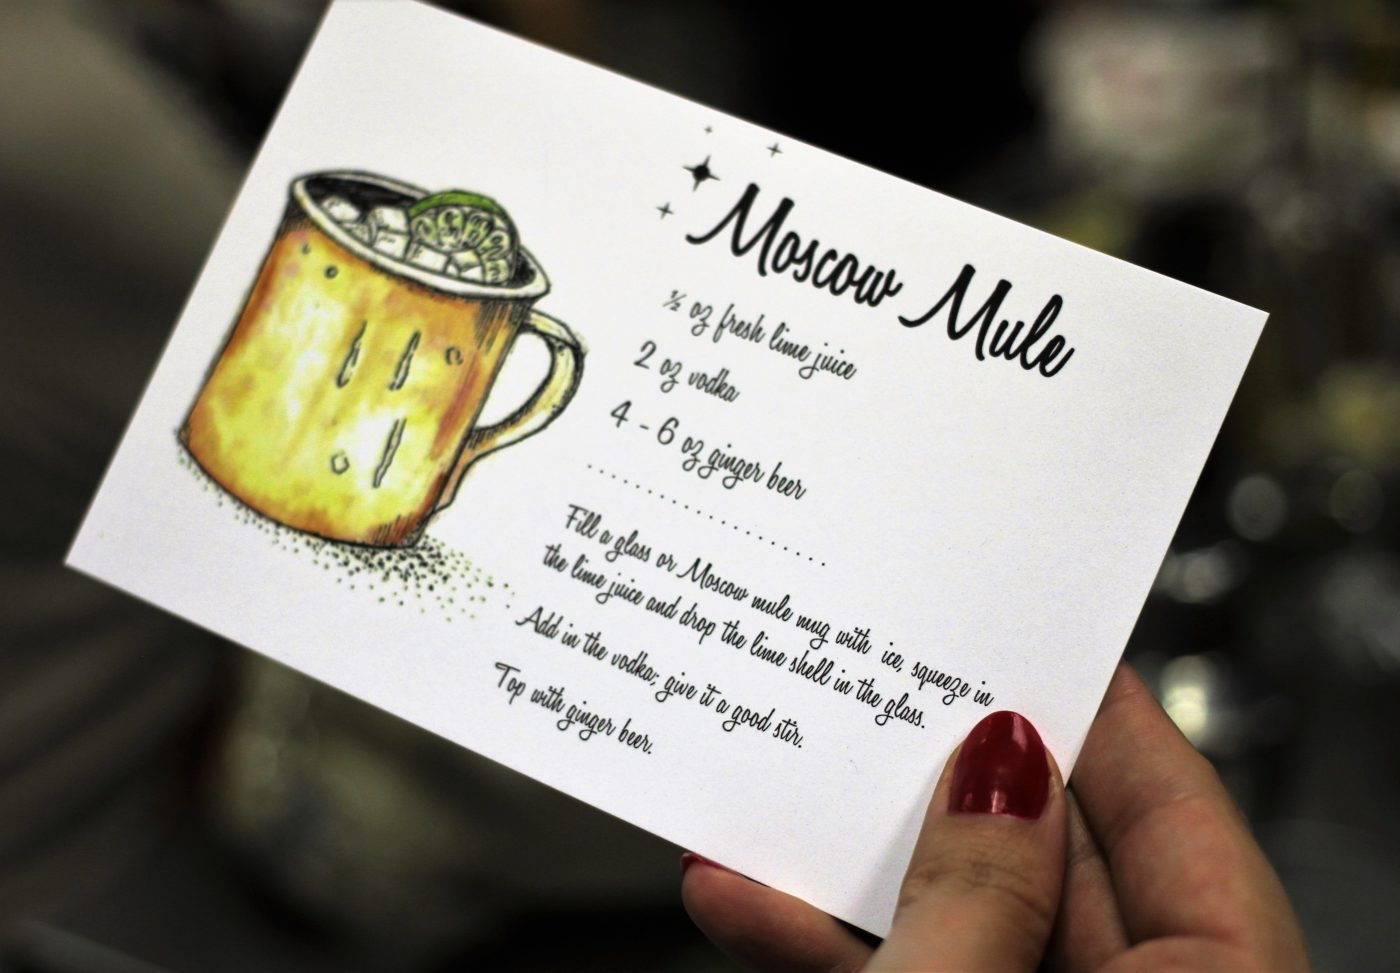 Moscow Mule
½ oz fresh lime juice
2 oz vodka
4 - 6 oz ginger beer
....................
Fill a glass or Moscow mule mug with ice, squeeze in
the lime juice and drop the lime shell in the glass.
Add in the vodka; give it a good stir.
Top with ginger beer.